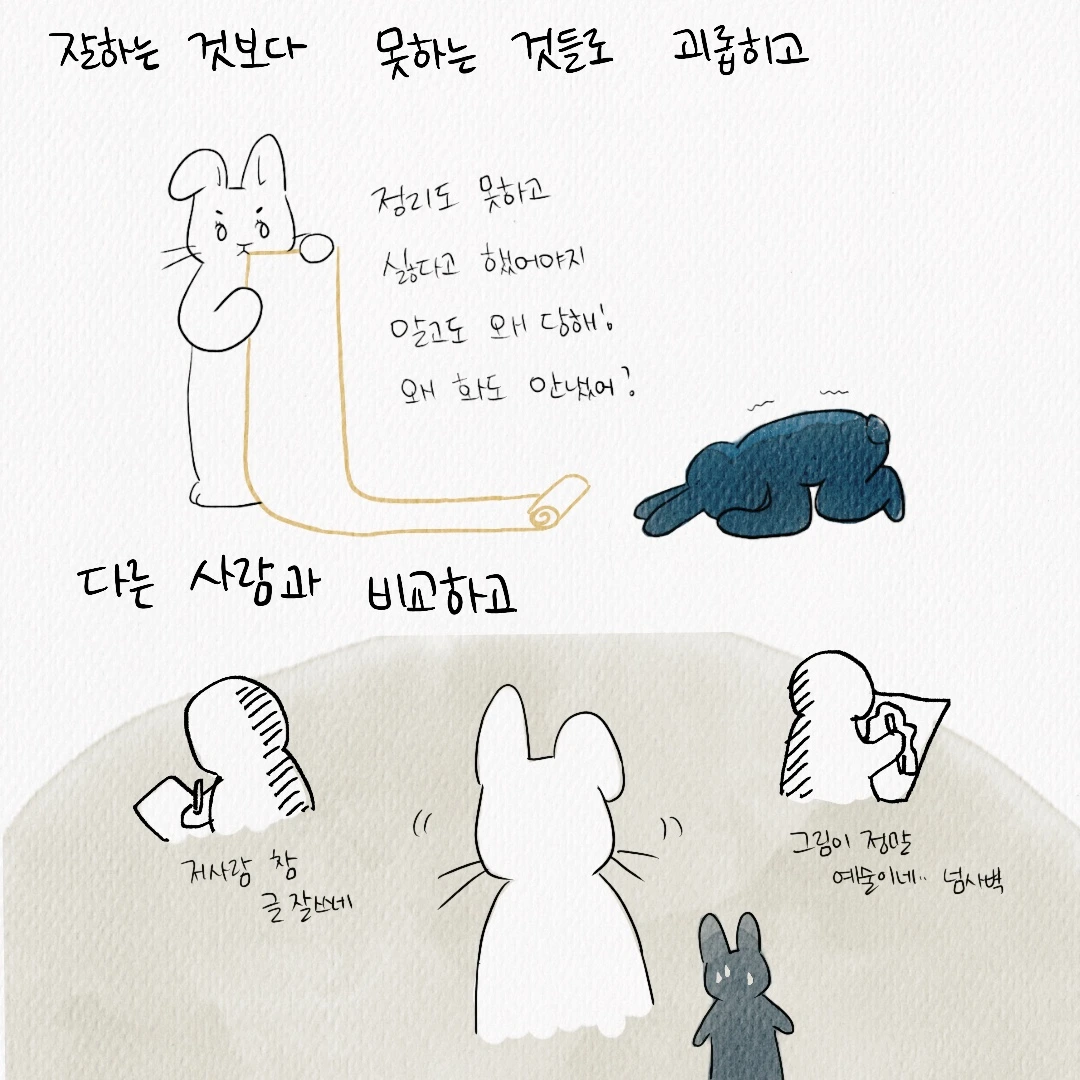 잘하는 것보다 못하는 것들로 괴롭히고
정리도 못하고
싫다고 했어야지
알고도 왜 당해!
왜 화도 안냈어?
다른 사람과 비교하고
저사람 참
글 잘쓰네
그림이 정말
예술이네.. 넘사벽